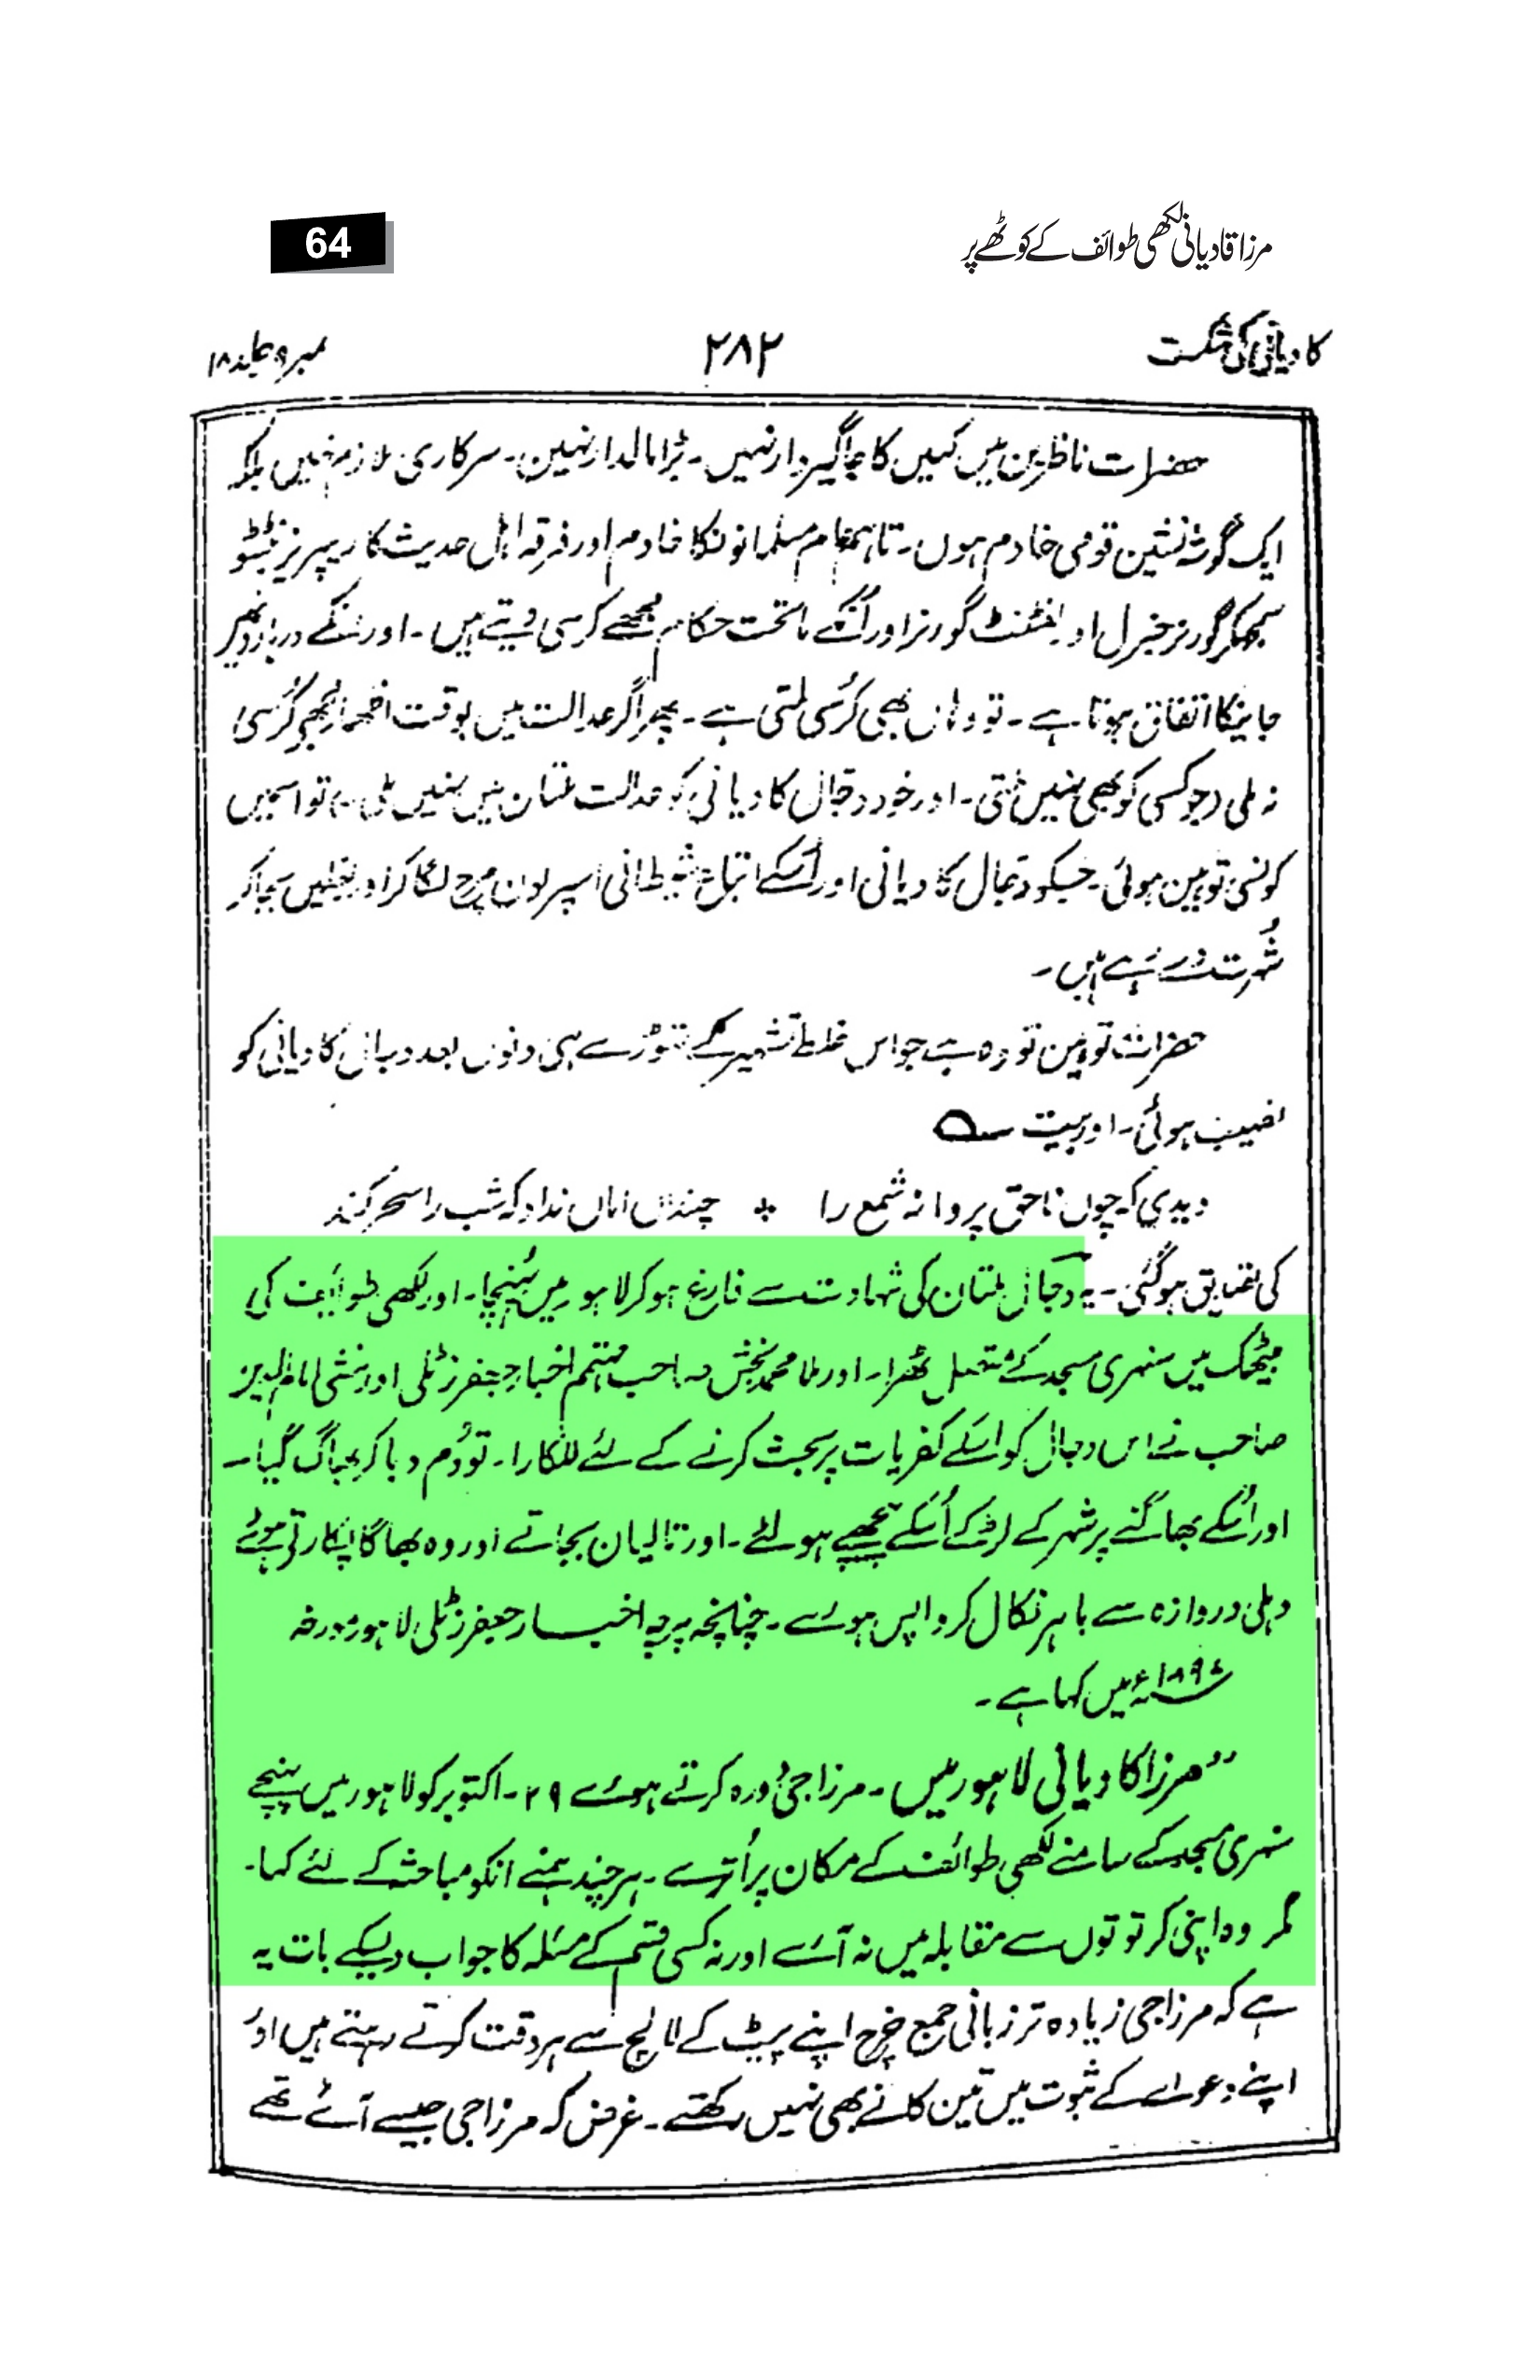 مرزا قادیانی لکھی طوائف کے کوٹھے پر
64
کادیانی کی شکست
۲۸۲
نمبر ۹ جلد ۱۸
حضرات ناظرین میں کہیں کا جاگیردار نہیں۔ بڑا مالدار نہین۔ سرکاری ملازم نہیں بلکہ
ایک گوشہ نشین قومی خادم ہوں۔ تاہم عام مسلمانونکا خادم اور فرقہ اہل حدیث کا ریپریزنٹیٹو
سمجھکر گورنر جنرل اور لفٹنٹ گورنر اور اُنکے ماتحت حکام مجھے کرسی دیتے ہیں۔ اور انکے دربار میں
جانیکا اتفاق ہوتا ہے۔ تو وہاں بھی کُرسی ملتی ہے۔ پھر اگر عدالت میں بوقت اظہار مجھے کُرسی
نہ ملی (جو کسی کو بھی نہیں ملتی۔ اور خود دجال کادیانی کو عدالت ملتان میں نہیں ملی) تو اسمیں
کونسی توہین ہوئی۔ جسکو دجال کادیانی اور اُسکے اتباع شیطانی اسپر لون مرچ لگا کر اور بغلیں بجا کر
شُہرت دے رہے ہیں۔
حضرات توہین تو وہ ہے جو اس غلط تشہیر کے تھوڑے ہی دنوں بعد دجال کادیانی کو
نصیب ہوئی۔ اور بیت ؎
دیدی کہ چوں ناحق پروانہ شمع را * چنداں اماں نداد کہ شب را سحر کند
کی تصدیق ہوگئی۔ یہ دجال ملتان کی شہادت سے فارغ ہو کر لاہور میں پُہنچا۔ اور لکھی طوایف کی
بیٹھک میں سنہری مسجد کے متصل ٹھرا۔ اور ملا محمد بخش صاحب مہتمم اخبار جعفر زٹلی اور منشی امام الدین
صاحب نے اس دجال کو اسکے کفریات پر بحث کرنے کے لئے للکارا۔ تو دُم دبا کر بھاگ گیا۔
اور اُسکے بھاگنے پر شہر کے لڑکے اُسکے پیچھے ہو لئے۔ اور تالیان بجاتے اور وہ بھاگا پکارتے ہوئے
دہلی دروازہ سے باہر نکال کر واپس ہوئے۔ چنانچہ پرچہ اخبار جعفر زٹلی لاہور مورخہ
۱۸۹۷ء میں کہا ہے۔
”مرزا کادیانی لاہور میں۔ مرزا جی دورہ کرتے ہوئے ۲۹۔ اکتوبر کو لاہور میں پہنچے
سنہری مسجد کے سامنے لکھی طوائف کے مکان پر اُترے۔ ہر چند ہمنے انکو مباحثہ کے لئے کہا۔
مگر وہ اپنی کرتوتوں سے مقابلہ میں نہ آئے اور نہ کسی قسم کے مسئلہ کا جواب دیسکے بات یہ
ہے کہ مرزا جی زیادہ تر زبانی جمع خرچ اپنے پیٹ کے لالچ سے ہر وقت کرتے رہتے ہیں اور
اپنے دعوےٰ کے ثبوت میں تین کانے بھی نہیں رکھتے۔ غرض کہ مرزا جی جیسے آئے تھے